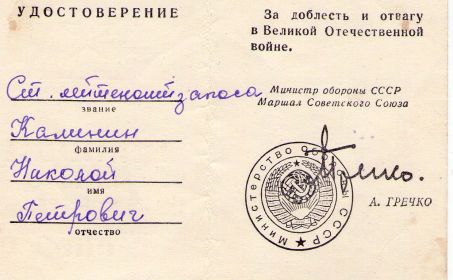 УДОСТОВЕРЕНИЕ
Ст. лейтенант запаса
звание
Калинин
фамилия
Николай
имя
Петрович
отчество
За доблесть и отвагу
в Великой Отечественной
войне.
Министр обороны СССР
Маршал Советского Союза
Министерство Обороны СССР
А. ГРЕЧКО